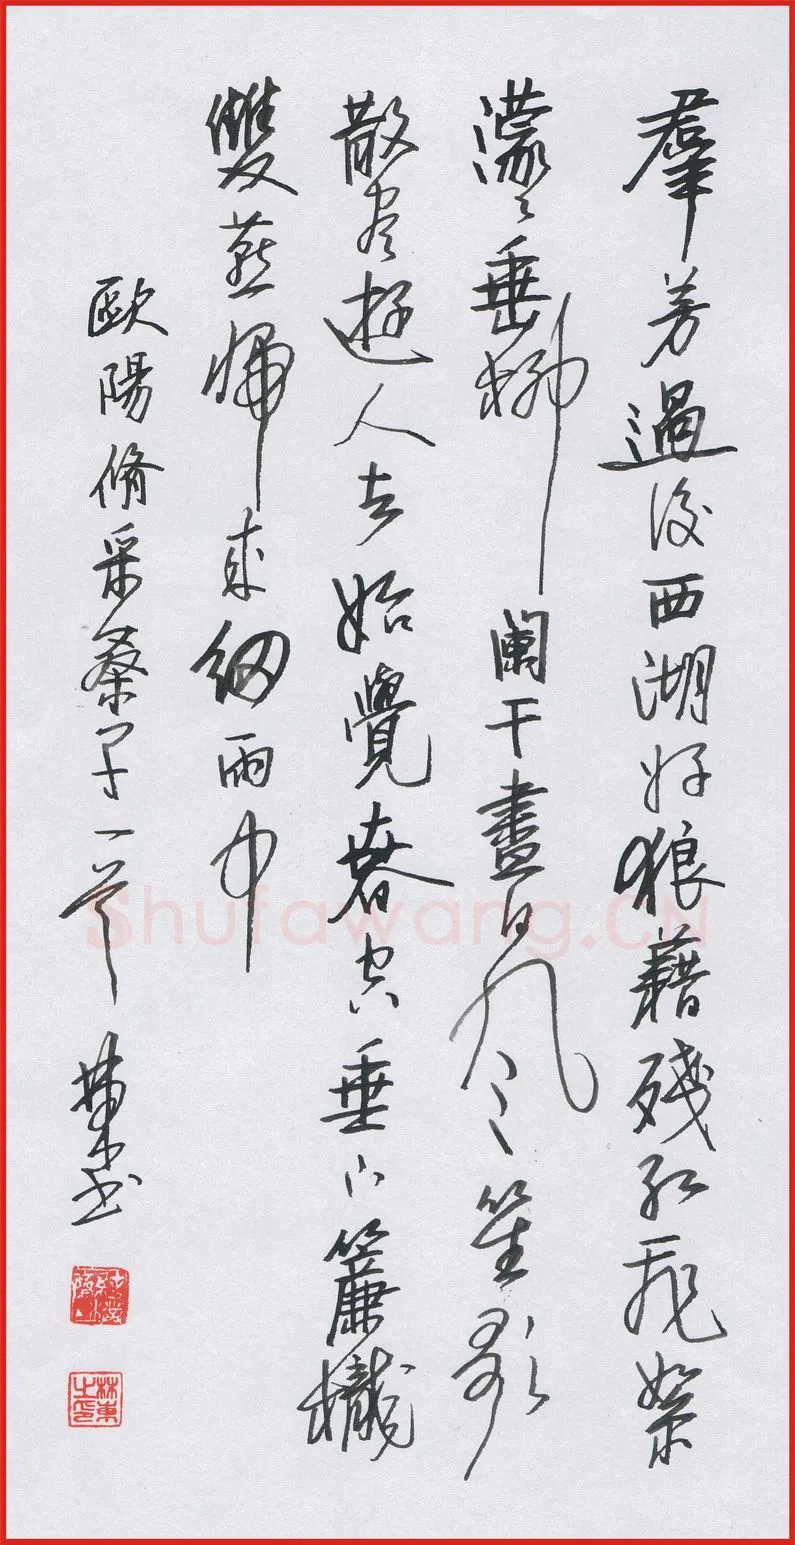 羣芳過後西湖好狼藉殘紅飛絮
濛〻垂柳闌干盡日風笙歌
散盡遊人去始覺春空垂下簾櫳
雙燕歸來細雨中
歐陽脩采桑子一首 林東书
林東之印
Shufawang.CN